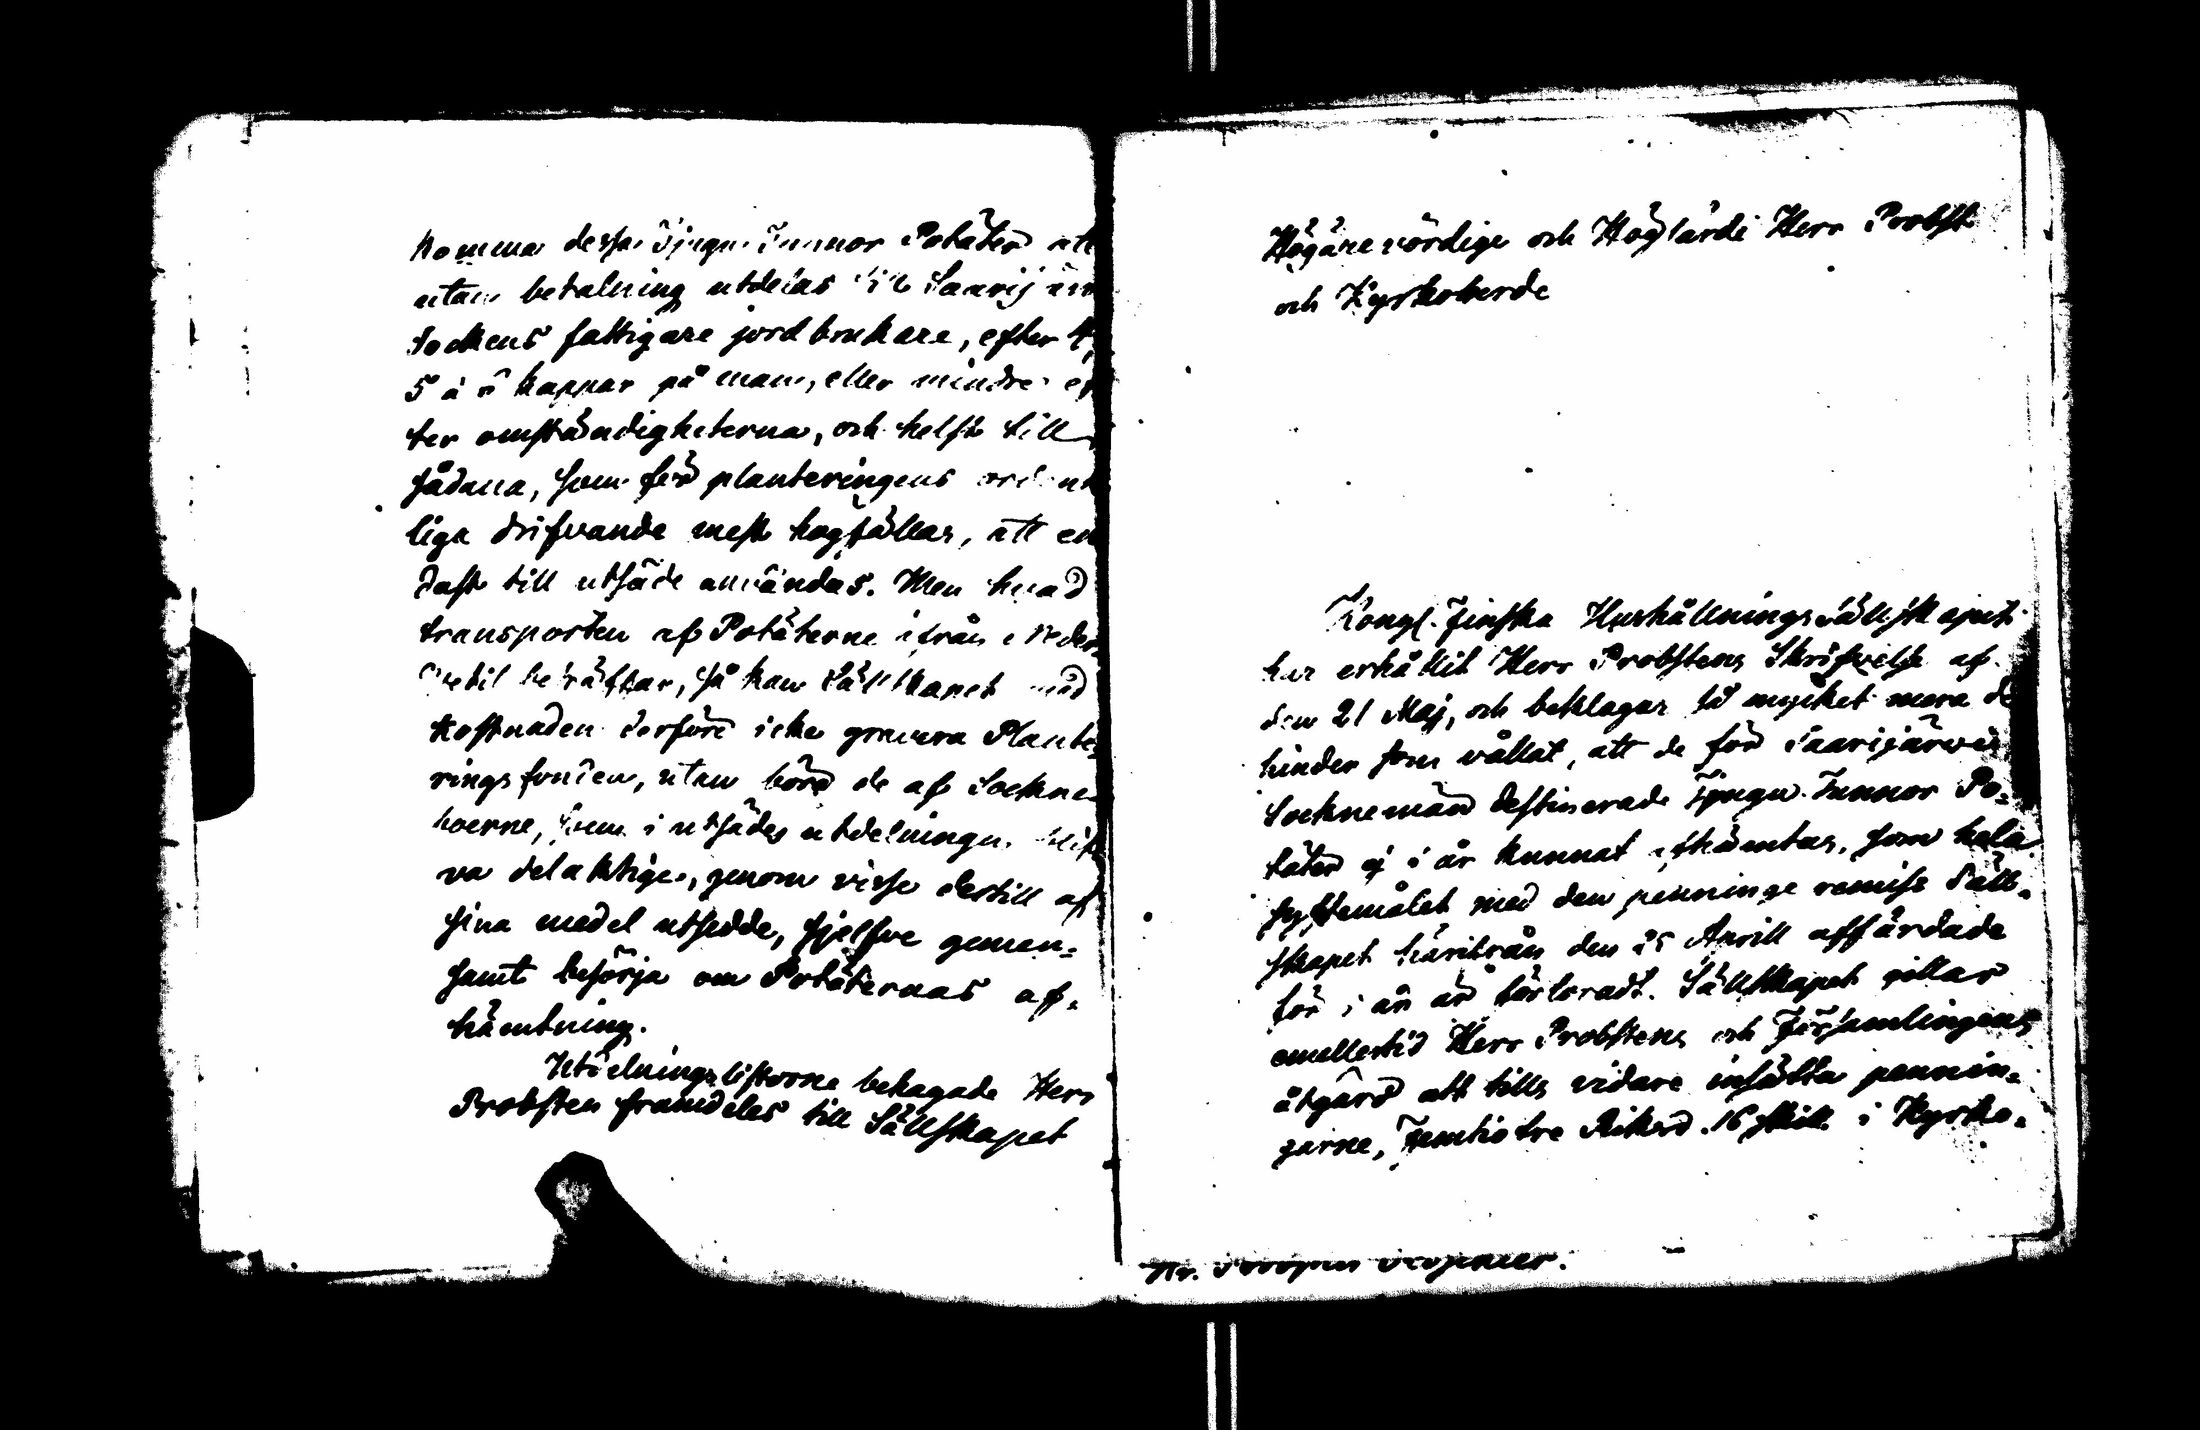 komma dessa tjugu Tunnor Potäter att
utan betalning utdelas till Saarijärvi
Sockens fattigare jordbrukare, efter 4,
5 à 6 kappar på man, eller mindre ef
ter omständigheterna, och helst till
sådana, som för planteringens ordent
liga drifvande mest hogfällas, att en
dast till utsäde användas. Men hvad
transporten af Potäterne ifrån Neder
beträffar, så kan Sällskapet med
kostnaden derföre icke gravera Plante-
ringsfonden, utan böra de af Sockne-
boerne, som i utsädes utdelningen blif
va delaktige, genom visse dertill af
sina medel utsedde, sjelfve gemen-
samt besörja om Potäternas af-
hämtning.
Utdelningslistorne behagade Herr
Probsten framdeles till Sällskapet
Högärevördige och Höglärde Herr Probst
och Kyrkoherde
Kongl. Finska Hushållnings Sällskapet
har erhållit Herr Probstens Skrifvelse af
den 21 Maj, och beklagar så mycket mera de
hinder som vållat, att de för Saarijärvi
Socknemän destinerade Tjugu Tunnor Po-
täter ej i år kunnat afhämtas, som hela
syftemålet med den penninge remise Säll-
skapet härifrån den 25 Aprill affärdade
för i år är förloradt. Sällskapet gillar
emellertid Herr Probstens och Församlingens
åtgärd att tills vidare insätta pennin-
garne, Femtiotre Riksd. 16 skill. i Kyrko-